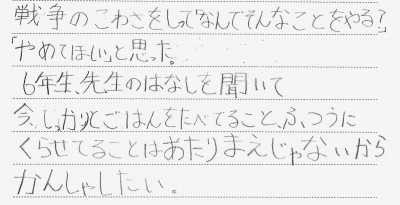 戦争のこわさをしって「なんでそんなことをやる?
「やめてほしい」と思った。
6年生、先生のはなしを聞いて
今、しっかりとごはんをたべてること、ふつうに
くらせてることはあたりまえじゃないから
かんしゃしたい。